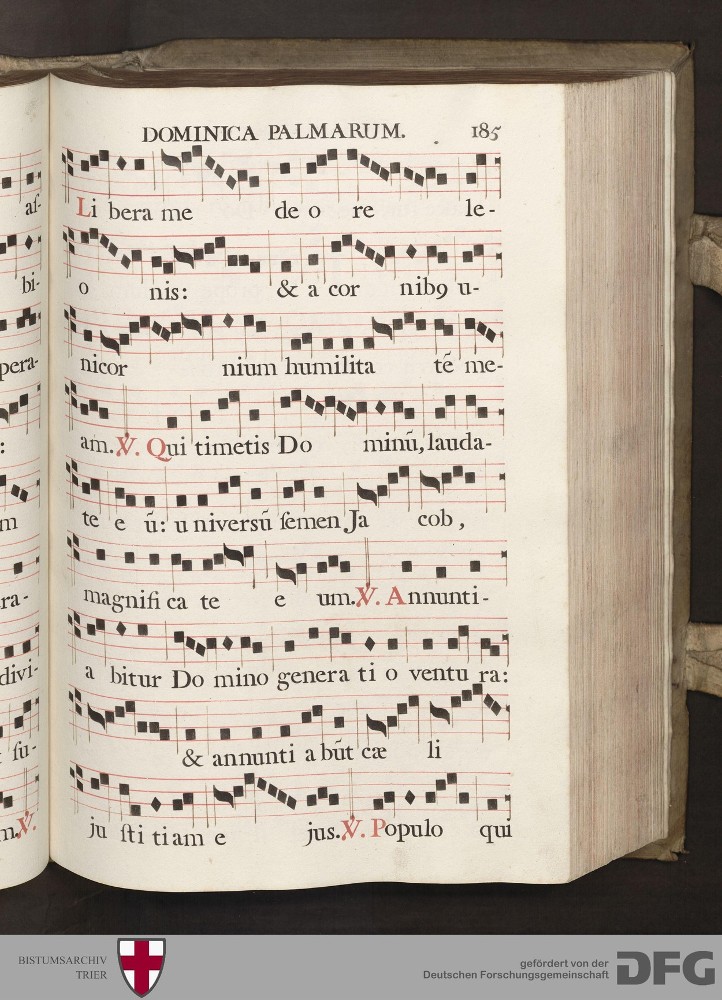 DOMINICA PALMARUM. 185
af-
Li bera me de o re le-
bi-
o nis: & a cor nib9 u-
pera-
nicor nium humilita tē me-
:
am. ℣. Qui timetis Do minū, lauda-
m
te e ū: u niversū ſemen Ja cob,
ra-
magnifi ca te e um. ℣. Annunti-
divi-
a bitur Do mino genera ti o ventu ra:
ſu-
& annunti a būt cæ li
m. ℣.
ju ſti tiam e jus. ℣. Populo qui
BISTUMSARCHIV
TRIER
gefördert von der
Deutschen Forschungsgemeinschaft
DFG